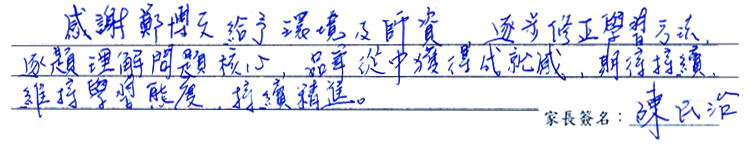 感謝鄭博天給予環境及師資,逐步修正學習方法,
逐題理解問題核心,品華從中獲得成就感,期待持續,
維持學習態度,持續精進。
家長簽名:陳民治